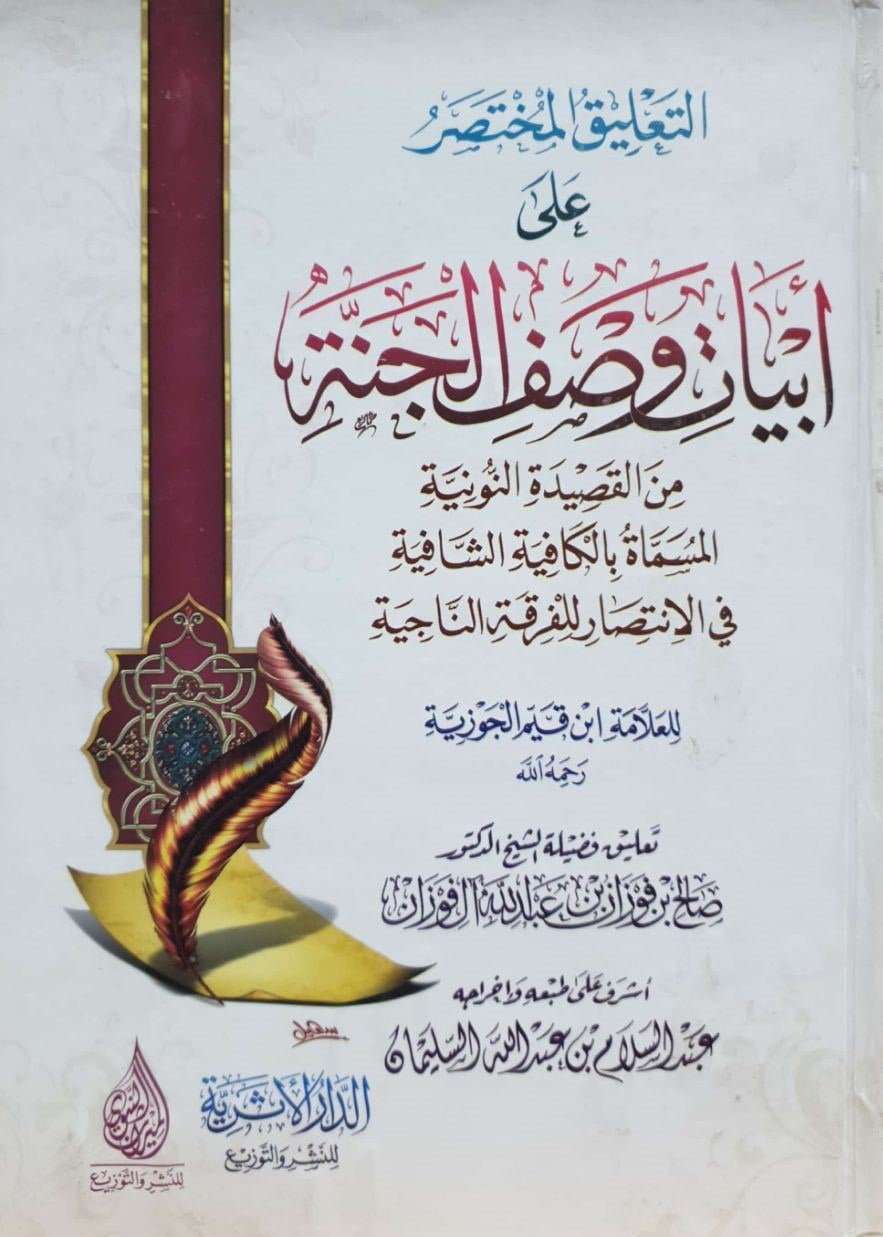 التَّعْلِيقُ المُخْتَصَرُ
عَلَى
أَبْيَاتِ وَصْفِ الْجَنَّةِ
مِنَ القَصِيْدَةِ النُّونِيَّةِ
المُسَمَّاةُ بِالكَافِيَةِ الشَّافِيَةِ
فِي الِانْتِصَارِ لِلْفِرْقَةِ النَّاجِيَةِ
لِلعَلَّامَةِ ابْنِ قَيِّمِ الْجَوْزِيَّةِ
رَحِمَهُ اللَّه
تعليق فضيلة الشيخ الدكتور
صَالِح بْن فَوْزَان بْن عَبْدِ اللَّه آل فَوْزَان
أشرف على طبعه وإخراجه
عَبْد السَّلَام بْن عَبْد اللَّه السُّلَيْمَان
الدَّارُ الأَثَرِيَّة
لِلنَّشْرِ وَالتَّوْزِيعِ
الميراث النبوي
لِلنَّشْرِ وَالتَّوْزِيعِ